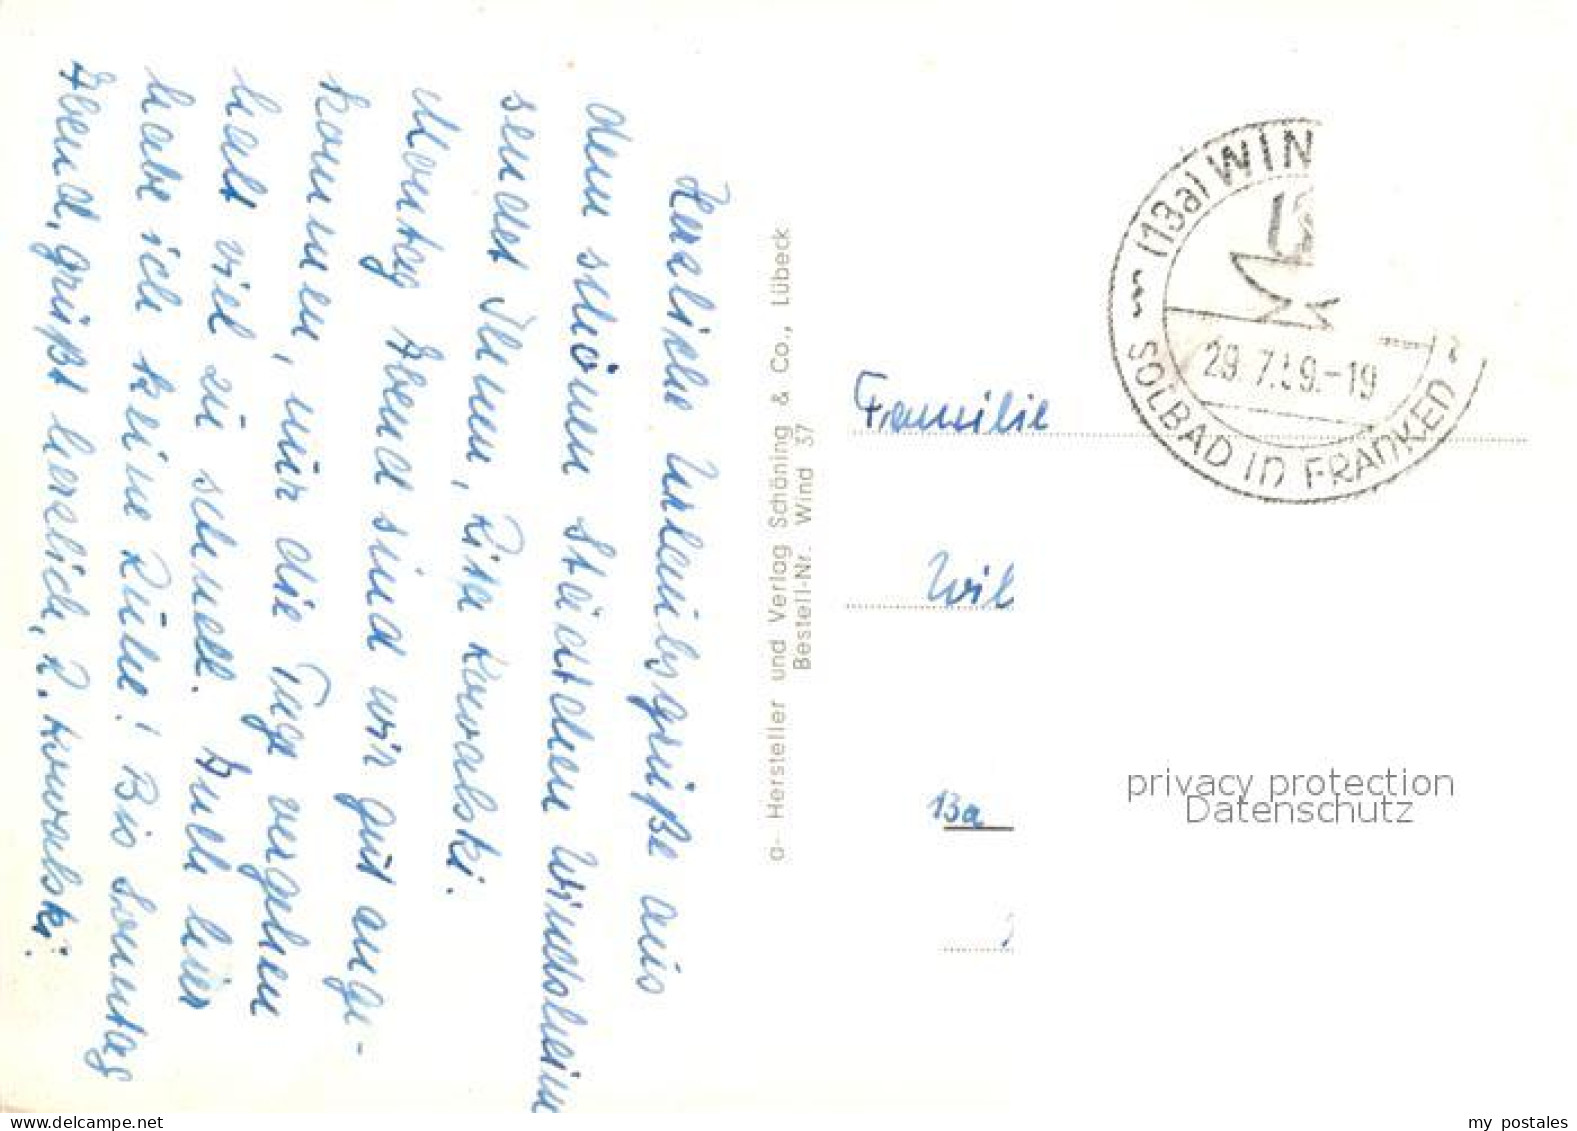 Herzliche Urlaubsgrüße aus
dem schönen Städtchen Windsheim
sendet Ihnen, Rita Kowalski.
Montag Abend sind wir gut ange-
kommen, nur die Tage vergehen
halt viel zu schnell. Auch hier
habe ich keine Ruhe! Bis Sonntag
Abend, grüßt herzlich, R. Kowalski.
a- Hersteller und Verlag Schöning & Co., Lübeck
Bestell-Nr. Wind 37
(13a) WIN
29.7.59.-19
SOLBAD IN FRANKEN
Familie
Wil
13a
privacy protection
Datenschutz
my postales